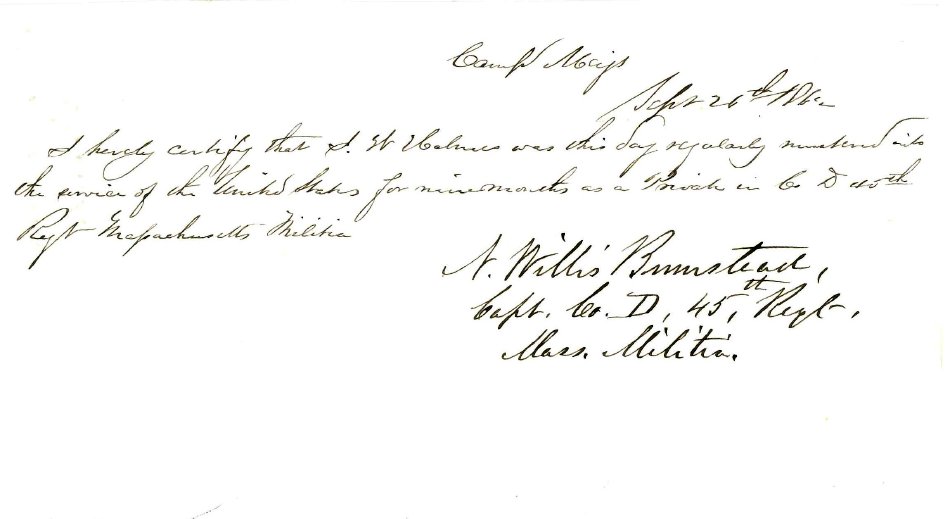 Camp Meigs
Sept 26th 1862
I hereby certify that S. W Holmes was this day regularly mustered into
the service of the United States for nine months as a Private in Co D 45th
Regt Massachusetts Militia
N. Willis Bumstead,
Capt. Co. D, 45,th Regt.
Mass. Militia.